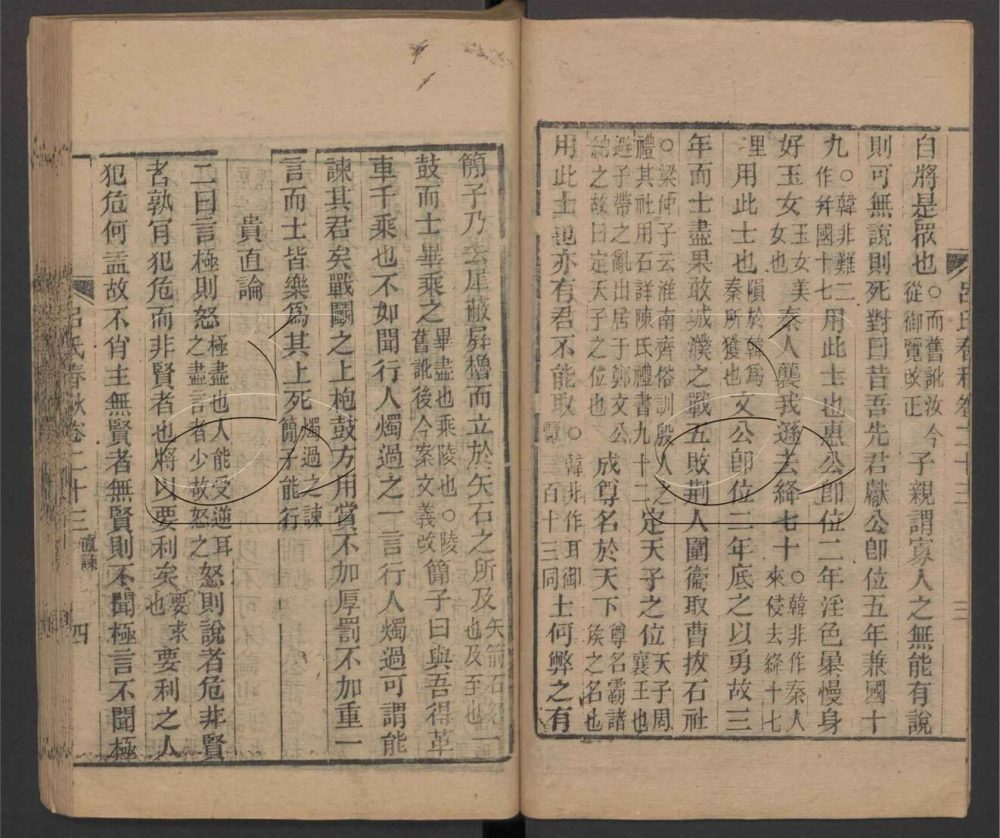 呂氏春秋卷二十三 三
自將是眾也○而舊訛汝今從御覽改正子親謂寡人之無能有說
則可無說則死對曰昔吾先君獻公卽位五年兼國十
九○韓非難二作幷國十七用此士也惠公卽位二年淫色暴慢身
好玉女玉女美女也秦人襲我遜去絳七十○韓非作秦人來侵去絳十七
里用此士也隕於韓爲秦所獲也文公卽位二年底之以勇故三
年而士盡果敢城濮之戰五敗荊人圍衞取曹拔石社
○梁仲子云淮南齊俗訓殷人之禮其社用石詳陳氏禮書九十二定天子之位天子周襄王也
避子帶之亂出居于鄭文公納之故曰定天子之位也成尊名於天下尊名霸諸矦之名也
用此士也亦有君不能取○韓非作耳御覽三百十三同士何弊之有
簡子乃去犀蔽屏櫓而立於矢石之所及矢箭石也及至也一
鼓而士畢乘之畢盡也乘陵也○陵舊訛後今案文義改簡子曰與吾得革
車千乘也不如聞行人燭過之一言行人燭過可謂能
諫其君矣戰鬭之上枹鼓方用賞不加厚罰不加重一
言而士皆樂爲其上死燭過之諫簡子能行
貴直論
二曰言極則怒極盡也人能受逆耳之盡言者少故怒之怒則說者危非賢
者孰肎犯危而非賢者也將以要利矣要求也要利之人
犯危何益故不肖主無賢者無賢則不聞極言不聞極
呂氏春秋卷二十三 直諫 四